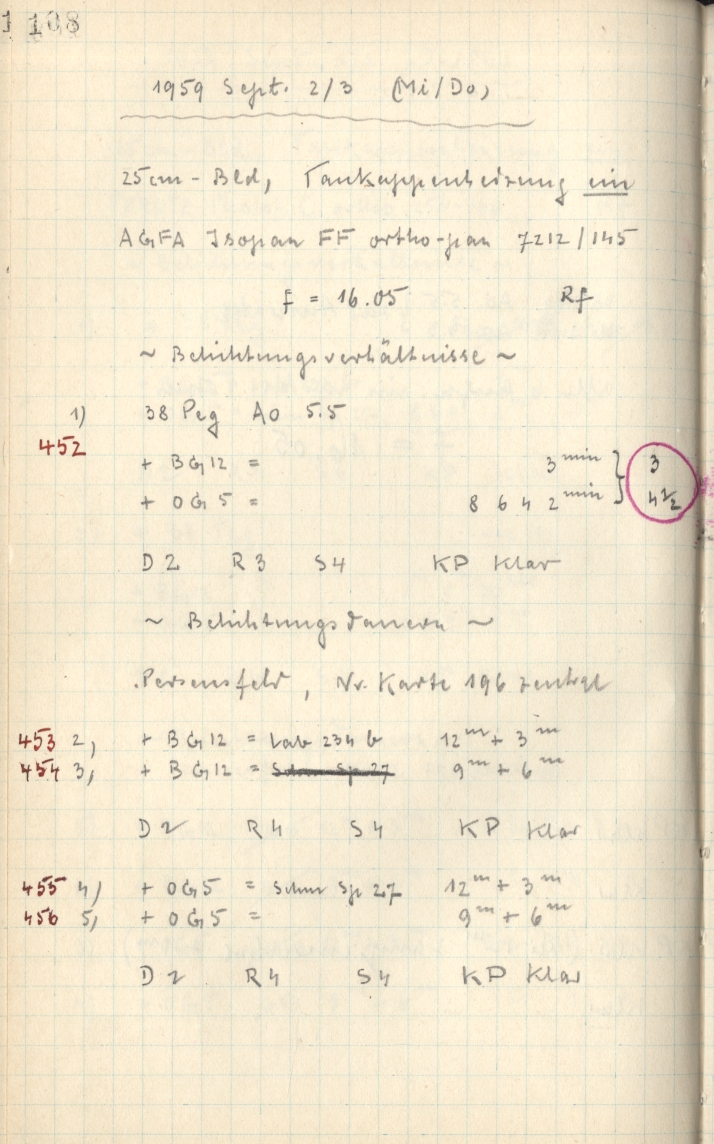 108
1959 Sept. 2/3 (Mi/Do)
25cm-Bld, Taukappenheizung ein
AGFA Isopan FF ortho-pan 7212/145
f = 16.05 Rf
~ Belichtungsverhältnisse ~
1) 38 Peg A0 5.5
452
+ BG12 = 3 min } 3
+ OG5 = 8 6 4 2 min } 4 1/2
D2 R3 S4 KP Klar
~ Belichtungsdauern ~
Perseusfeld, Nr. Karte 196 zentral
453 2, + BG12 = Vab 234 b 12m + 3m
454 3, + BG12 = 9m + 6m
D2 R4 S4 KP Klar
455 4) + OG5 = Schm Sp 27 12m + 3m
456 5, + OG5 = 9m + 6m
D2 R4 S4 KP Klar